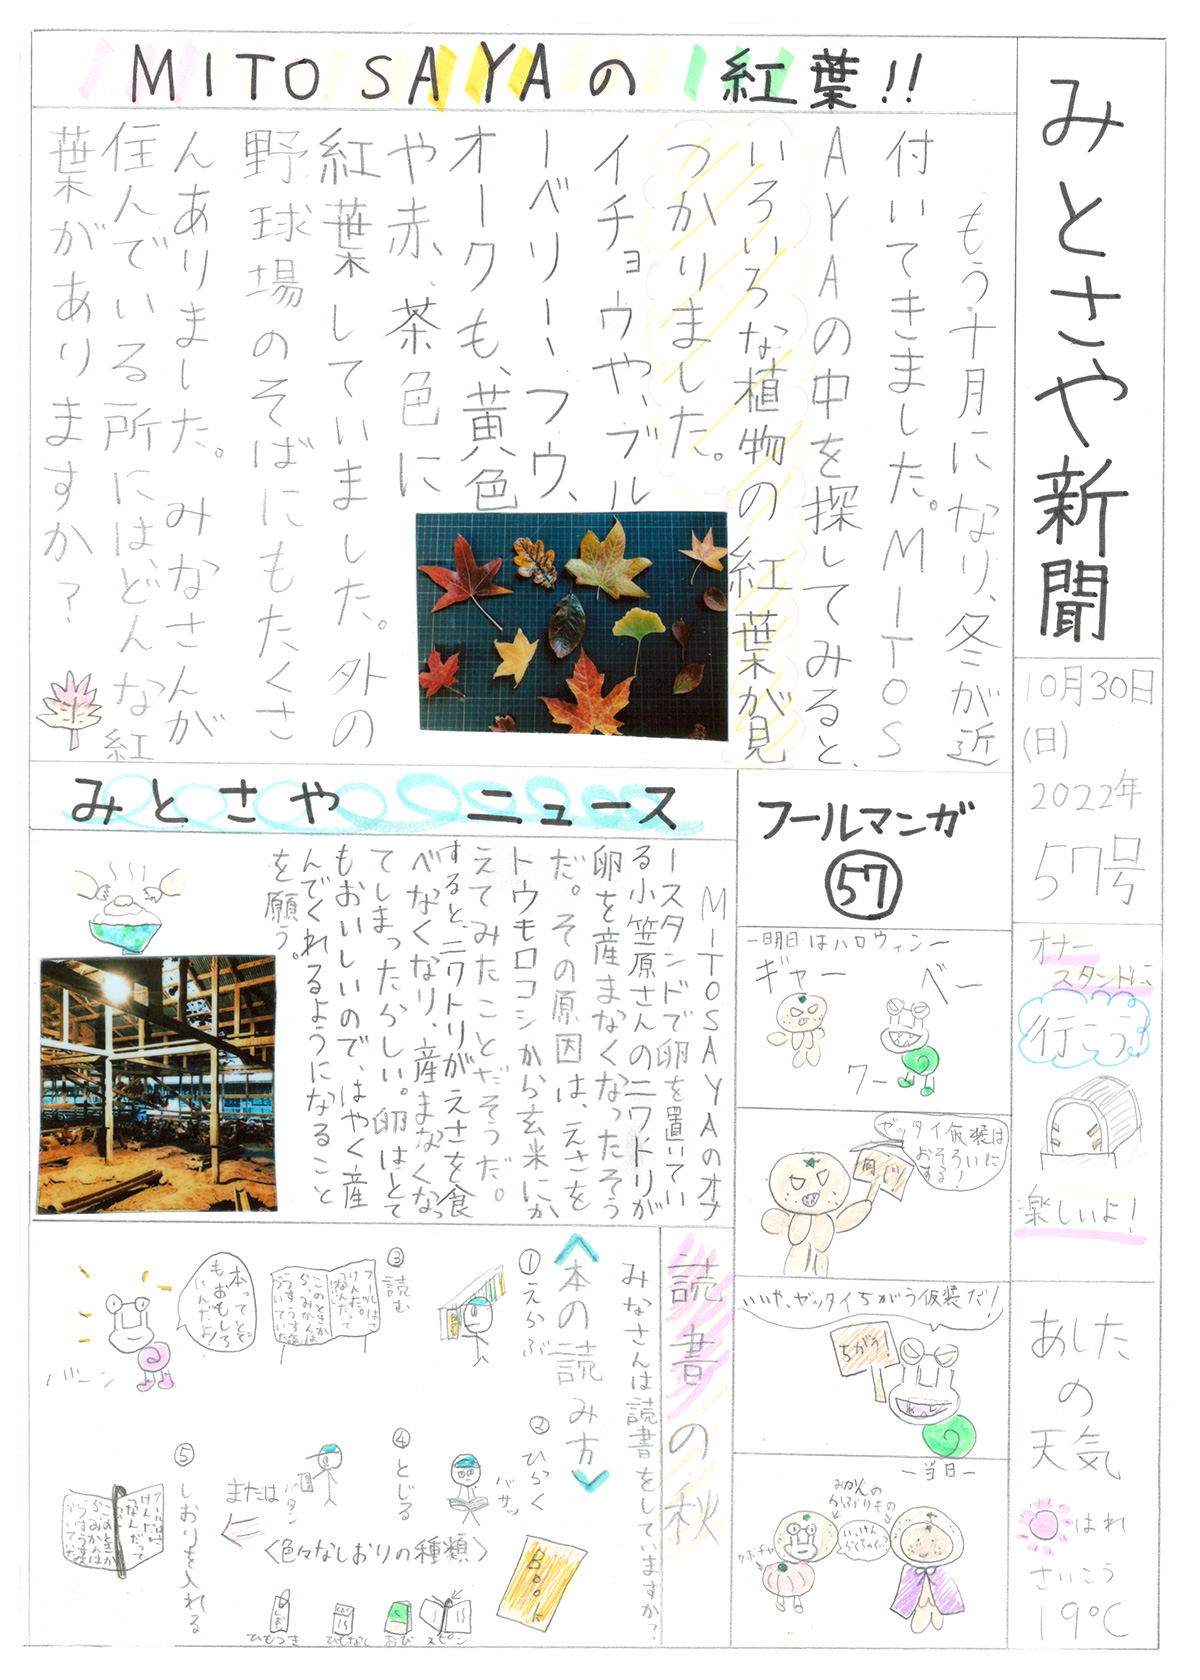 みとさや新聞
10月30日
(日)
2022年
57号
オナー
スタンドに
行こう!
楽しいよ!
あした
の
天気
はれ
さいこう
19℃
MITOSAYAの紅葉!!
もう十月になり、冬が近
付いてきました。MITOS
AYAの中を探してみると、
いろいろな植物の紅葉が見
つかりました。
イチョウや、ブル
ーベリー、フウ、
オークも、黄色
や赤、茶色に
紅葉していました。外の
野球場のそばにもたくさ
んありました。みなさんが
住んでいる所には、どんな紅
葉がありますか?
みとさや ニュース
MITOSAYAのオナ
ースタンドで卵を置いてい
る小笠原さんのニワトリが
卵を産まなくなったそう
だ。その原因は、えさを
トウモロコシから玄米にか
えてみたことだそうだ。
すると、ニワトリがえさを食
べなくなり、産まなくなっ
てしまったらしい。卵はとて
もおいしいので、はやく産
んでくれるようになること
を願う。
フールマンガ
57
ー明日はハロウィンー
ギャー
ベー
ワー
ゼッタイ仮装は
おそろいに
する!
同じ
いいや、ゼッタイちがう仮装だ!
ちがう
ー当日ー
みかんの
かぶりもの
カボチャ
読書の秋
みなさんは読書をしていますか?
<本の読み方>
①えらぶ
②ひらく
バサッ
③読む
④とじる
パタン
または
⑤しおりを入れる
本ってとて
もおもしろ
いんだな!
バーン
<色々なしおりの種類>
ひもつき
ひもなし
おび
スピン
Book